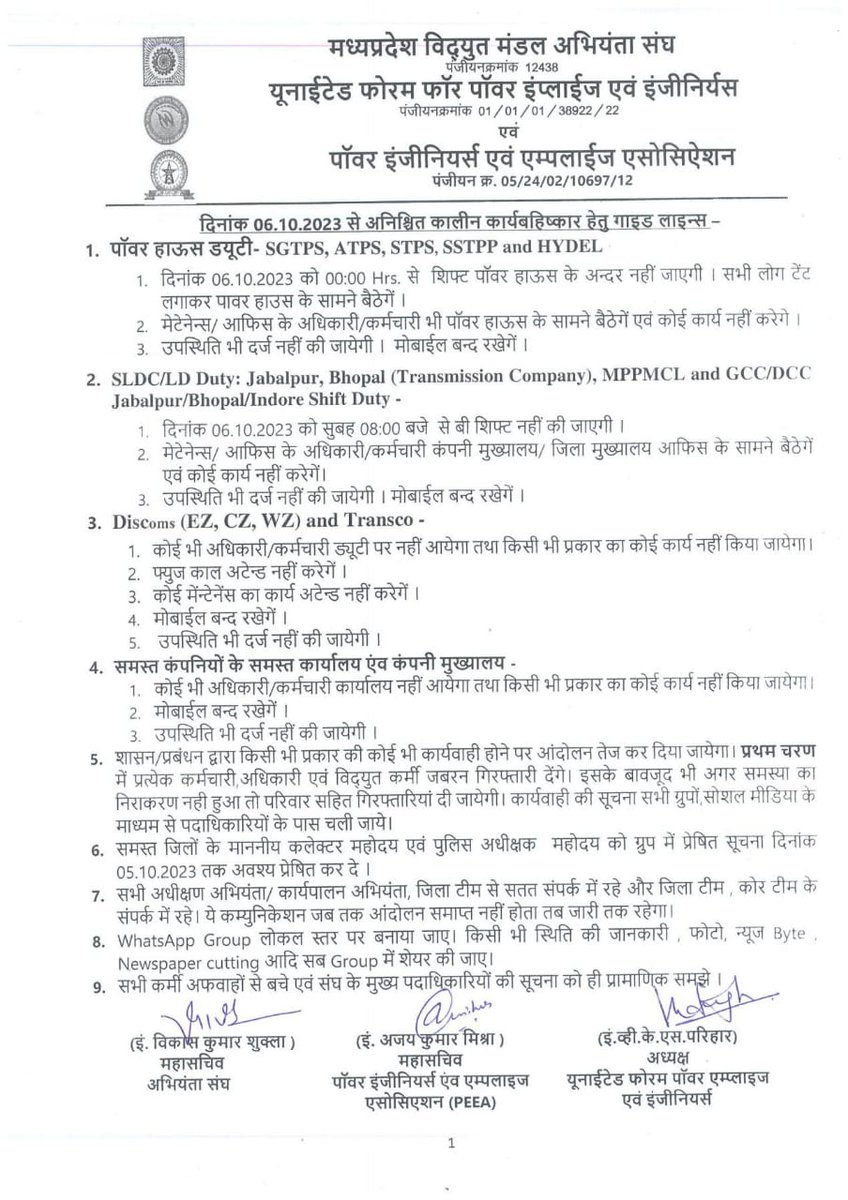 मध्यप्रदेश विद्युत मंडल अभियंता संघ
पंजीयनक्रमांक 12438
यूनाईटेड फोरम फॉर पॉवर इंप्लाईज एवं इंजीनियर्स
पंजीयनक्रमांक 01/01/01/38922/22
एवं
पॉवर इंजीनियर्स एवं एम्पलाईज एसोसिऐशन
पंजीयन क्र. 05/24/02/10697/12
दिनांक 06.10.2023 से अनिश्चित कालीन कार्यबहिष्कार हेतु गाइड लाइन्स –
1. पॉवर हाऊस डयूटी- SGTPS, ATPS, STPS, SSTPP and HYDEL
1. दिनांक 06.10.2023 को 00:00 Hrs. से शिफ्ट पॉवर हाऊस के अन्दर नहीं जाएगी । सभी लोग टेंट
लगाकर पावर हाउस के सामने बैठेगें ।
2. मेटेनेन्स/ आफिस के अधिकारी/कर्मचारी भी पॉवर हाऊस के सामने बैठेगें एवं कोई कार्य नहीं करेगे ।
3. उपस्थिति भी दर्ज नहीं की जायेगी । मोबाईल बन्द रखेगें ।
2. SLDC/LD Duty: Jabalpur, Bhopal (Transmission Company), MPPMCL and GCC/DCC
Jabalpur/Bhopal/Indore Shift Duty -
1. दिनांक 06.10.2023 को सुबह 08:00 बजे से बी शिफ्ट नहीं की जाएगी ।
2. मेटेनेन्स/ आफिस के अधिकारी/कर्मचारी कंपनी मुख्यालय/ जिला मुख्यालय आफिस के सामने बैठेगें
एवं कोई कार्य नहीं करेगें।
3. उपस्थिति भी दर्ज नहीं की जायेगी । मोबाईल बन्द रखेगें ।
3. Discoms (EZ, CZ, WZ) and Transco -
1. कोई भी अधिकारी/कर्मचारी ड्यूटी पर नहीं आयेगा तथा किसी भी प्रकार का कोई कार्य नहीं किया जायेगा।
2. फ्युज काल अटेन्ड नहीं करेगें ।
3. कोई मेंन्टेनेंस का कार्य अटेन्ड नहीं करेगें ।
4. मोबाईल बन्द रखेगें ।
5. उपस्थिति भी दर्ज नहीं की जायेगी ।
4. समस्त कंपनियों के समस्त कार्यालय एंव कंपनी मुख्यालय -
1. कोई भी अधिकारी/कर्मचारी कार्यालय नहीं आयेगा तथा किसी भी प्रकार का कोई कार्य नहीं किया जायेगा।
2. मोबाईल बन्द रखेगें ।
3. उपस्थिति भी दर्ज नहीं की जायेगी ।
5. शासन/प्रबंधन द्वारा किसी भी प्रकार की कोई भी कार्यवाही होने पर आंदोलन तेज कर दिया जायेगा। प्रथम चरण
में प्रत्येक कर्मचारी,अधिकारी एवं विद्युत कर्मी जबरन गिरफ्तारी देंगे। इसके बावजूद भी अगर समस्या का
निराकरण नही हुआ तो परिवार सहित गिरफ्तारियां दी जायेगी। कार्यवाही की सूचना सभी ग्रुपों,सोशल मीडिया के
माध्यम से पदाधिकारियों के पास चली जाये।
6. समस्त जिलों के माननीय कलेक्टर महोदय एवं पुलिस अधीक्षक महोदय को ग्रुप में प्रेषित सूचना दिनांक
05.10.2023 तक अवश्य प्रेषित कर दे ।
7. सभी अधीक्षण अभियंता/ कार्यपालन अभियंता, जिला टीम से सतत संपर्क में रहे और जिला टीम , कोर टीम के
संपर्क में रहे। ये कम्युनिकेशन जब तक आंदोलन समाप्त नहीं होता तब जारी तक रहेगा।
8. WhatsApp Group लोकल स्तर पर बनाया जाए। किसी भी स्थिति की जानकारी , फोटो, न्यूज Byte ,
Newspaper cutting आदि सब Group में शेयर की जाए।
9. सभी कर्मी अफवाहों से बचे एवं संघ के मुख्य पदाधिकारियों की सूचना को ही प्रामाणिक समझे ।
(इं. विकास कुमार शुक्ला ) (इं. अजय कुमार मिश्रा ) (इं.व्ही.के.एस.परिहार)
महासचिव महासचिव अध्यक्ष
अभियंता संघ पॉवर इंजीनियर्स एंव एम्पलाइज यूनाईटेड फोरम पॉवर एम्प्लाइज
एसोसिएशन (PEEA) एवं इंजीनियर्स
1